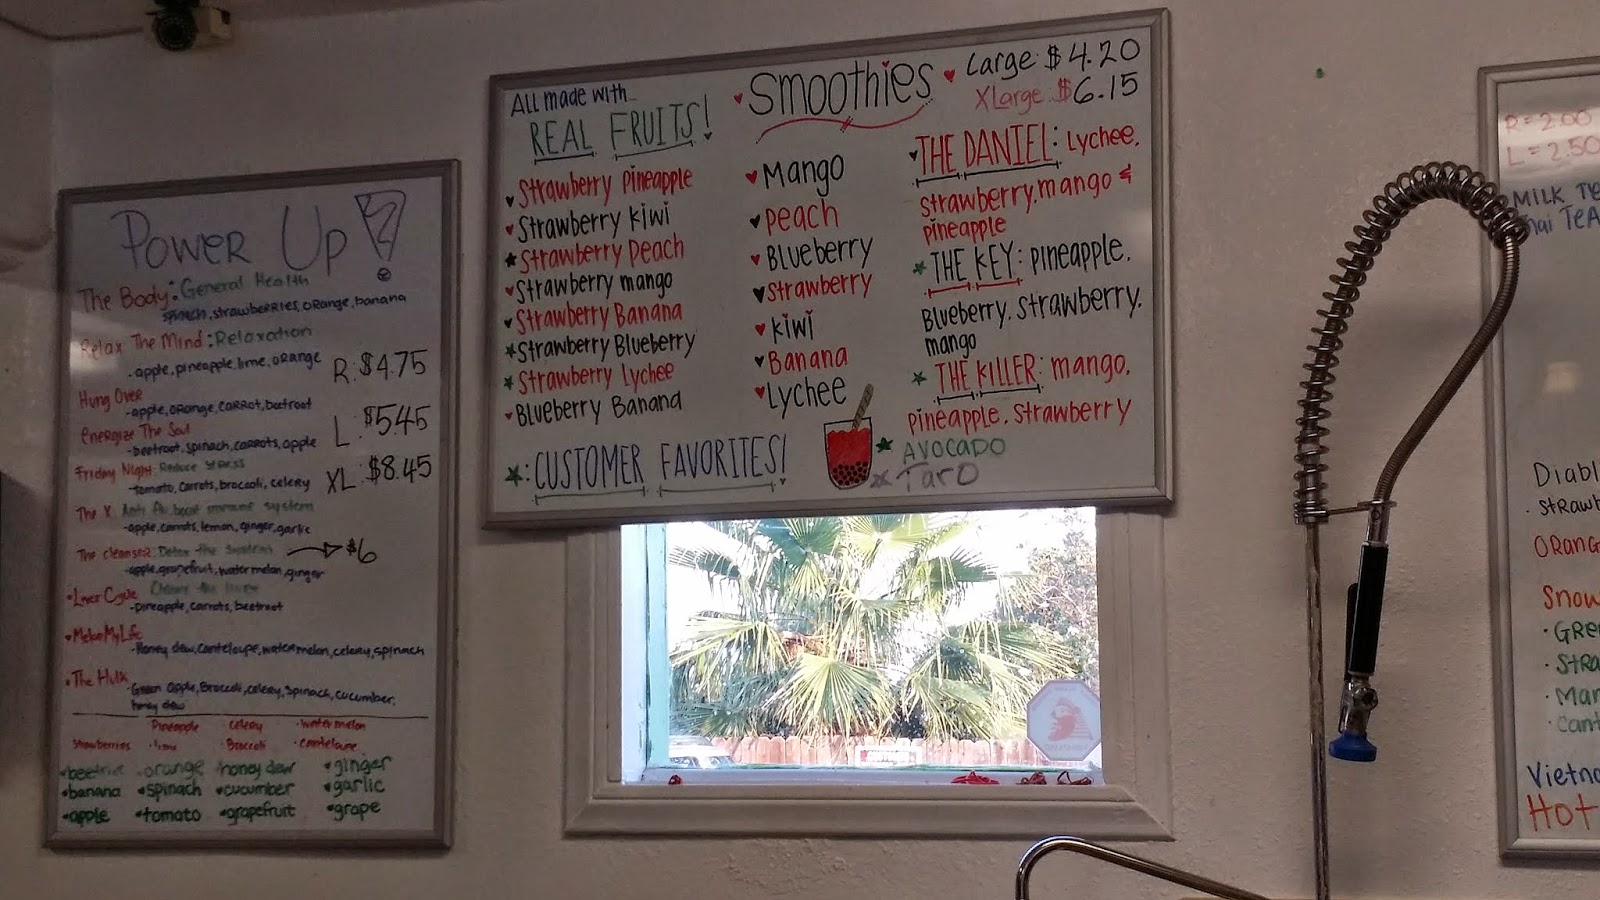 Power Up!
The Body: General Health
spinach, strawberries, orange, banana
Relax The Mind: Relaxation
- apple, pineapple, lime, orange
R: $4.75
Hung Over
- apple, orange, carrot, beetroot
L: $5.45
Energize The Soul
- beetroot, spinach, carrots, apple
Friday Night: Reduce stress
- tomato, carrots, broccoli, celery
XL: $8.45
The X: Anti flu, boost immune system
- apple, carrots, lemon, ginger, garlic
The cleanser: Detox the system → $6
- apple, grapefruit, watermelon, ginger
• Liver Cycle
- pineapple, carrots, beetroot
• MelonMyLife
- Honey dew, canteloupe, watermelon, celery, spinach
• The Hulk
- Green apple, Broccoli, celery, spinach, cucumber,
honey dew
Pineapple celery • water melon
strawberries • lime Broccoli • cantelaupe
• beetroot • orange honey dew • ginger
• banana • spinach • cucumber • garlic
• apple • tomato • grapefruit • grape
All made with...
REAL FRUITS!
Strawberry Pineapple
Strawberry kiwi
Strawberry Peach
Strawberry mango
Strawberry Banana
Strawberry Blueberry
Strawberry Lychee
Blueberry Banana
: CUSTOMER FAVORITES!
Smoothies
Mango
Peach
Blueberry
Strawberry
kiwi
Banana
Lychee
Large: $4.20
XLarge: $6.15
THE DANIEL: Lychee,
strawberry, mango &
pineapple
THE KEY: pineapple,
Blueberry, Strawberry,
mango
THE KILLER: mango,
pineapple, strawberry
AVOCADO
Taro
R = 2.00
L = 2.50
MILK
Thai
Diabl
Strawb
Orang
Snow
• Gre
• Stra
• Man
• Cant
Vietna
Hot